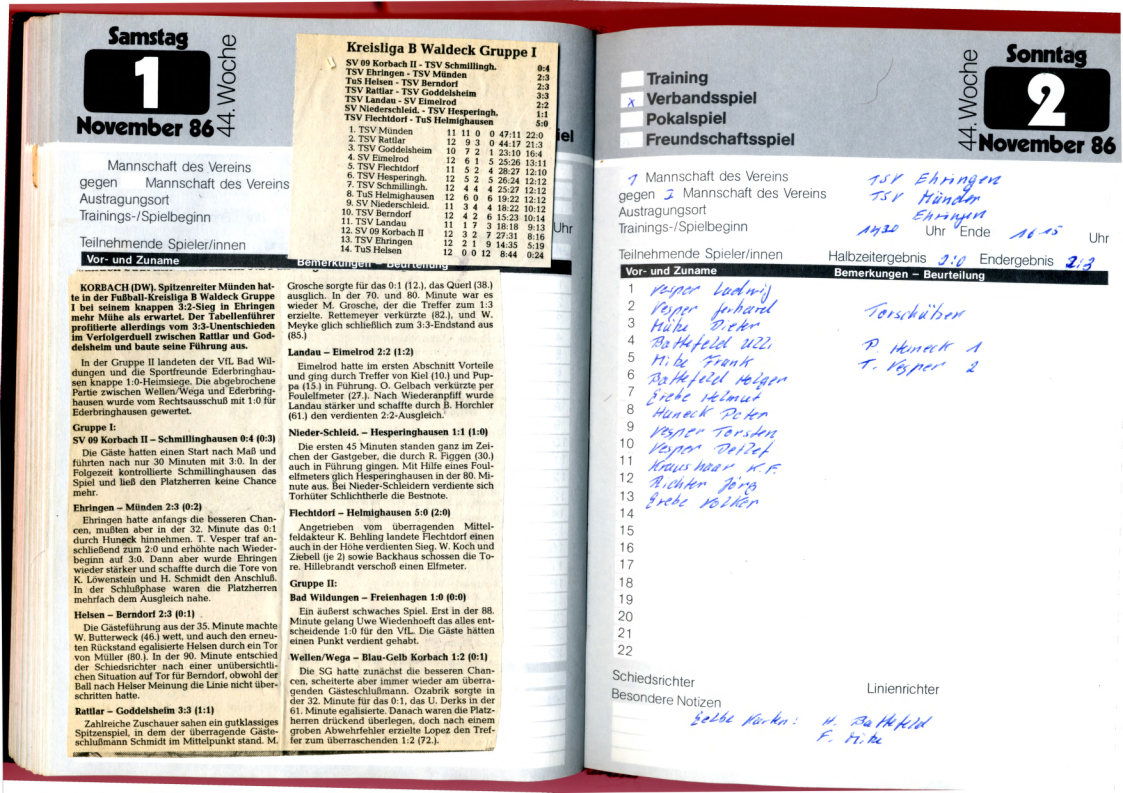 Samstag
1
November 86
44. Woche
Mannschaft des Vereins
gegen Mannschaft des Vereins
Austragungsort
Trainings-/Spielbeginn
Uhr
Teilnehmende Spieler/innen
Vor- und Zuname
Bemerkungen – Beurteilung
Kreisliga B Waldeck Gruppe I
SV 09 Korbach II - TSV Schmillingh. 0:4
TSV Ehringen - TSV Münden 2:3
TuS Helsen - TSV Berndorf 2:3
TSV Rattlar - TSV Goddelsheim 3:3
TSV Landau - SV Eimelrod 2:2
SV Niederschleid. - TSV Hesperingh. 1:1
TSV Flechtdorf - TuS Helmighausen 5:0
1. TSV Münden 11 11 0 0 47:11 22:0
2. TSV Rattlar 12 9 3 0 44:17 21:3
3. TSV Goddelsheim 10 7 2 1 23:10 16:4
4. SV Eimelrod 12 6 1 5 25:26 13:11
5. TSV Flechtdorf 11 5 2 4 28:27 12:10
6. TSV Hesperingh. 12 5 2 5 26:24 12:12
7. TSV Schmillingh. 12 4 4 4 25:27 12:12
8. TuS Helmighausen 12 6 0 6 19:22 12:12
9. SV Niederschleid. 11 3 4 4 18:22 10:12
10. TSV Berndorf 12 4 2 6 15:23 10:14
11. TSV Landau 11 1 7 3 18:18 9:13
12. SV 09 Korbach II 12 3 2 7 27:31 8:16
13. TSV Ehringen 12 2 1 9 14:35 5:19
14. TuS Helsen 12 0 0 12 8:44 0:24
KORBACH (DW). Spitzenreiter Münden hat-
te in der Fußball-Kreisliga B Waldeck Gruppe
I bei seinem knappen 3:2-Sieg in Ehringen
mehr Mühe als erwartet. Der Tabellenführer
profitierte allerdings vom 3:3-Unentschieden
im Verfolgerduell zwischen Rattlar und God-
delsheim und baute seine Führung aus.
In der Gruppe II landeten der VfL Bad Wil-
dungen und die Sportfreunde Ederbringhau-
sen knappe 1:0-Heimsiege. Die abgebrochene
Partie zwischen Wellen/Wega und Ederbring-
hausen wurde vom Rechtsausschuß mit 1:0 für
Ederbringhausen gewertet.
Gruppe I:
SV 09 Korbach II – Schmillinghausen 0:4 (0:3)
Die Gäste hatten einen Start nach Maß und
führten nach nur 30 Minuten mit 3:0. In der
Folgezeit kontrollierte Schmillinghausen das
Spiel und ließ den Platzherren keine Chance
mehr.
Ehringen – Münden 2:3 (0:2)
Ehringen hatte anfangs die besseren Chan-
cen, mußten aber in der 32. Minute das 0:1
durch Huneck hinnehmen. T. Vesper traf an-
schließend zum 2:0 und erhöhte nach Wieder-
beginn auf 3:0. Dann aber wurde Ehringen
wieder stärker und schaffte durch die Tore von
K. Löwenstein und H. Schmidt den Anschluß.
In der Schlußphase waren die Platzherren
mehrfach dem Ausgleich nahe.
Helsen – Berndorf 2:3 (0:1)
Die Gästeführung aus der 35. Minute machte
W. Butterweck (46.) wett, und auch den erneu-
ten Rückstand egalisierte Helsen durch ein Tor
von Müller (80.). In der 90. Minute entschied
der Schiedsrichter nach einer unübersichtli-
chen Situation auf Tor für Berndorf, obwohl der
Ball nach Helser Meinung die Linie nicht über-
schritten hatte.
Rattlar – Goddelsheim 3:3 (1:1)
Zahlreiche Zuschauer sahen ein gutklassiges
Spitzenspiel, in dem der überragende Gäste-
schlußmann Schmidt im Mittelpunkt stand. M.
Grosche sorgte für das 0:1 (12.), das Querl (38.)
ausglich. In der 70. und 80. Minute war es
wieder M. Grosche, der die Treffer zum 1:3
erzielte. Rettemeyer verkürzte (82.), und W.
Meyke glich schließlich zum 3:3-Endstand aus
(85.)
Landau – Eimelrod 2:2 (1:2)
Eimelrod hatte im ersten Abschnitt Vorteile
und ging durch Treffer von Kiel (10.) und Pup-
pa (15.) in Führung. O. Gelbach verkürzte per
Foulelfmeter (27.). Nach Wiederanpfiff wurde
Landau stärker und schaffte durch B. Horchler
(61.) den verdienten 2:2-Ausgleich.
Nieder-Schleid. – Hesperinghausen 1:1 (1:0)
Die ersten 45 Minuten standen ganz im Zei-
chen der Gastgeber, die durch R. Figgen (30.)
auch in Führung gingen. Mit Hilfe eines Foul-
elfmeters glich Hesperinghausen in der 80. Mi-
nute aus. Bei Nieder-Schleidern verdiente sich
Torhüter Schlichtherle die Bestnote.
Flechtdorf – Helmighausen 5:0 (2:0)
Angetrieben vom überragenden Mittel-
feldakteur K. Behling landete Flechtdorf einen
auch in der Höhe verdienten Sieg. W. Koch und
Ziebell (je 2) sowie Backhaus schossen die To-
re. Hillebrandt verschoß einen Elfmeter.
Gruppe II:
Bad Wildungen – Freienhagen 1:0 (0:0)
Ein äußerst schwaches Spiel. Erst in der 88.
Minute gelang Uwe Wiedenhoeft das alles ent-
scheidende 1:0 für den VfL. Die Gäste hätten
einen Punkt verdient gehabt.
Wellen/Wega – Blau-Gelb Korbach 1:2 (0:1)
Die SG hatte zunächst die besseren Chan-
cen, scheiterte aber immer wieder am überra-
genden Gästeschlußmann. Ozabrik sorgte in
der 32. Minute für das 0:1, das U. Derks in der
61. Minute egalisierte. Danach waren die Platz-
herren drückend überlegen, doch nach einem
groben Abwehrfehler erzielte Lopez den Tref-
fer zum überraschenden 1:2 (72.).
Sonntag
2
November 86
44. Woche
Training
x Verbandsspiel
Pokalspiel
Freundschaftsspiel
1 Mannschaft des Vereins TSV Ehringen
gegen I Mannschaft des Vereins TSV Münden
Austragungsort Ehringen
Trainings-/Spielbeginn 1430 Uhr Ende 1615 Uhr
Teilnehmende Spieler/innen Halbzeitergebnis 2:0 Endergebnis 2:3
Vor- und Zuname Bemerkungen – Beurteilung
1 Vesper Ludwig
2 Vesper Gerhard Torschützen
3 Mühe Dieter
4 Battefeld Ulli P. Huneck 1
5 Mibe Frank T. Vesper 2
6 Battefeld Holger
7 Grebe Helmut
8 Huneck Peter
9 Vesper Torsten
10 Vesper Detlef
11 Kraushaar K.F.
12 Richter Jörg
13 Grebe Volker
14
15
16
17
18
19
20
21
22
Schiedsrichter Linienrichter
Besondere Notizen
Gelbe Karten: H. Battefeld
F. Mibe